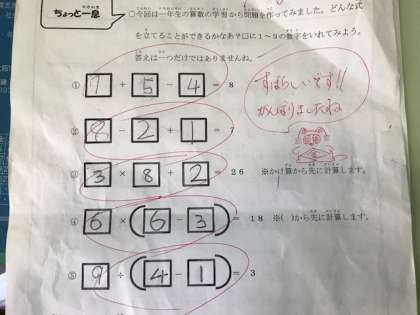 ちょっと一息
○今回は一年生の算数の学習から問題を作ってみました。どんな式
を立てることができるかなあ？□に1～9の数字をいれてみよう。
答えは一つだけではありませんね。
① 7 + 5 − 4 = 8
すばらしいです!!
がんばりましたね
② 8 − 2 + 1 = 7
③ 3 × 8 + 2 = 26 ※かけ算から先に計算します。
④ 6 × (6 − 3) = 18 ※( )から先に計算します。
⑤ 9 ÷ (4 − 1) = 3